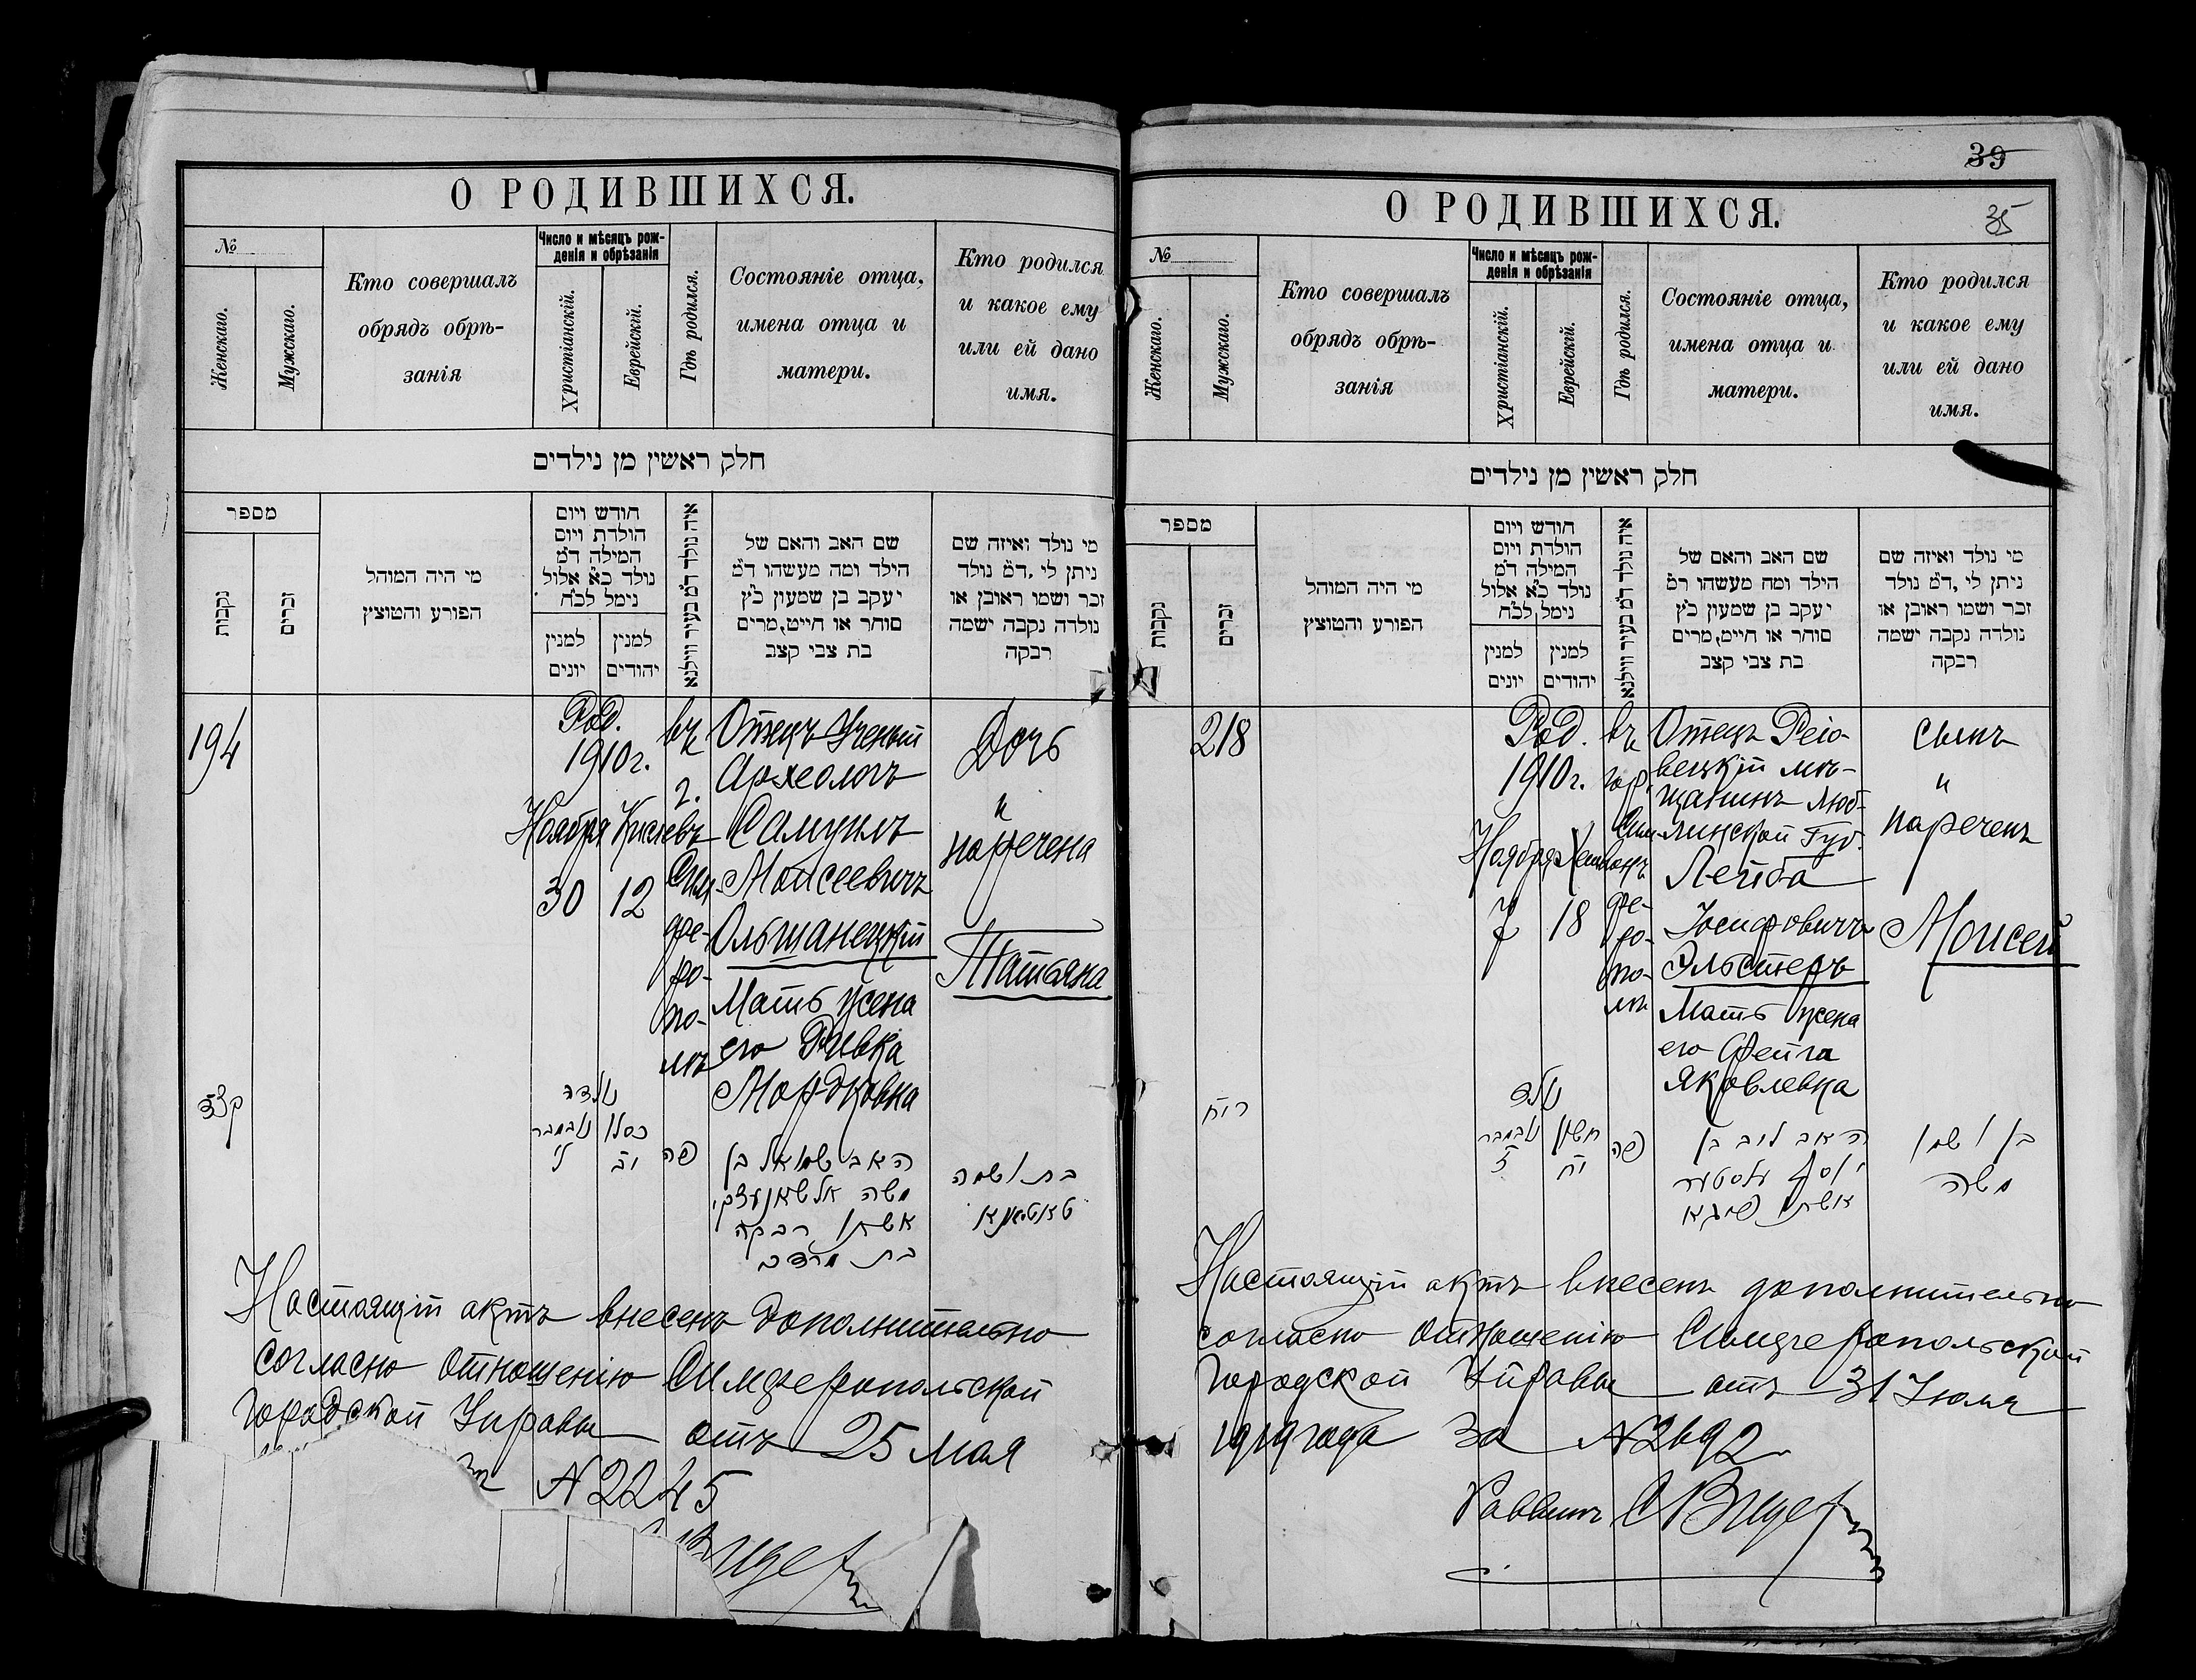 О РОДИВШИХСЯ.
№
Женскаго.
Мужскаго.
Кто совершалъ
обрядъ обрѣ-
занія
Число и мѣсяцъ рож-
денія и обрѣзанія
Христіанскій.
Еврейскій.
Гдѣ родился.
Состояніе отца,
имена отца и
матери.
Кто родился
и какое ему
или ей дано
имя.
חלק ראשין מן נילדים
מספר
נקבות
זכרים
מי היה המוהל
הפורע והמוצץ
חודש ויום
הולדת ויום
המילה ד״מ
נולד כ״א אלול
נימל לכ״ח
למנין
יונים
למנין
יהודים
איה נולד ד״מ בעיר ווילנא
שם האב והאם של
הילד ומה מעשהו ד״מ
יעקב בן שמעון כ״ץ
סוחר או חייט, מרים
בת צבי קצב
מי נולד ואיזה שם
ניתן לי, ד״מ נולד
זכר ושמו ראובן או
נולדה נקבה ישמה
רבקה
194
Род.
1910 г.
Ноября
30
Кислевъ
12
въ
г.
Сим-
фе-
ро-
по-
лѣ
Отецъ Ученый
Археологъ
Самуилъ
Моисеевичъ
Ольшанецкій
Мать жена
его Ривка
Мордковна
Дочь
"
наречена
Татьяна
קצד
נולדה
נובמבר
ל׳
כסלו
יב
פה
האב שמואל בן
משה אלשאנעצקי
אשתו רבקה
בת מרדכי
בת ושמה
טאטיאנא
Настоящій актъ внесенъ дополнительно
согласно отношенію Симферопольской
Городской Управы отъ 25 мая
№ 2245
О РОДИВШИХСЯ.
39
35
№
Женскаго.
Мужскаго.
Кто совершалъ
обрядъ обрѣ-
занія
Число и мѣсяцъ рож-
денія и обрѣзанія
Христіанскій.
Еврейскій.
Гдѣ родился.
Состояніе отца,
имена отца и
матери.
Кто родился
и какое ему
или ей дано
имя.
חלק ראשין מן נילדים
מספר
נקבות
זכרים
מי היה המוהל
הפורע והמוצץ
חודש ויום
הולדת ויום
המילה ד״מ
נולד כ״א אלול
נימל לכ״ח
למנין
יונים
למנין
יהודים
איה נולד ד״מ בעיר ווילנא
שם האב והאם של
הילד ומה מעשהו ד״מ
יעקב בן שמעון כ״ץ
סוחר או חייט, מרים
בת צבי קצב
מי נולד ואיזה שם
ניתן לי, ד״מ נולד
זכר ושמו ראובן או
נולדה נקבה ישמה
רבקה
218
Род.
1910 г.
Ноября
7
Хешванъ
18
въ
гор.
Сим-
фе-
ро-
по-
лѣ
Отецъ Рею-
вецкій мѣ-
щанинъ Люб-
линской Губ.
Лейба
Іосифовичъ
Эльстеръ
Мать жена
его Фейга
Яковлевна
сынъ
"
нареченъ
Моисей
ריח
נולד
נובמבר
ז
חשון
יח
פה
האב ליב בן
יוסף עלסטער
אשתו פייגא
בן ושמו
משה
Настоящій актъ внесенъ дополнительно
согласно отношенію Симферопольской
Городской Управы отъ 31 Іюля
1919 года за № 2692
Раввинъ